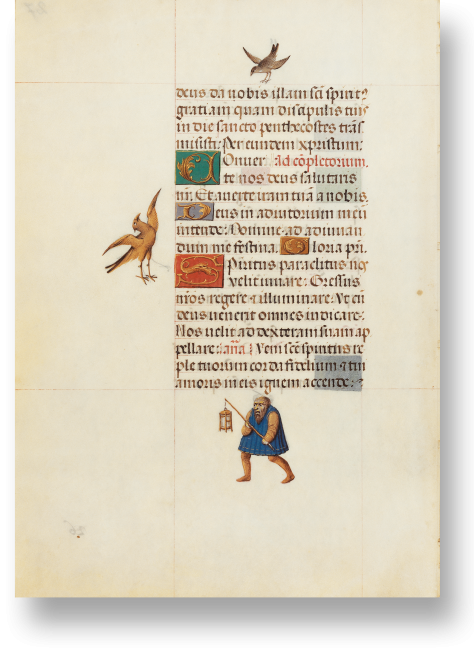 deus da nobis illam sc̄i spirit⁹
gratiam quam discipulis tuis
in die sancto penthecostes trās
misisti: Per eundem xpristum:
Conuer ad cōpletorium.
te nos deus salutaris
nr̄. Et auerte iram tuā a nobis.
Deus in adiutorium meū
intende: Domine ad adiuuan
dum me festina. Gloria pr̄i.
Spiritus paraclitus nos
velit iuuare: Gressus
nr̄os regere & illuminare: Vt cū
deus venerit omnes iudicare:
Nos velit ad dexteram suam ap
pellare: an̄a Veni sc̄e spiritus re
ple tuorum corda fidelium & tui
amoris in eis ignem accende: